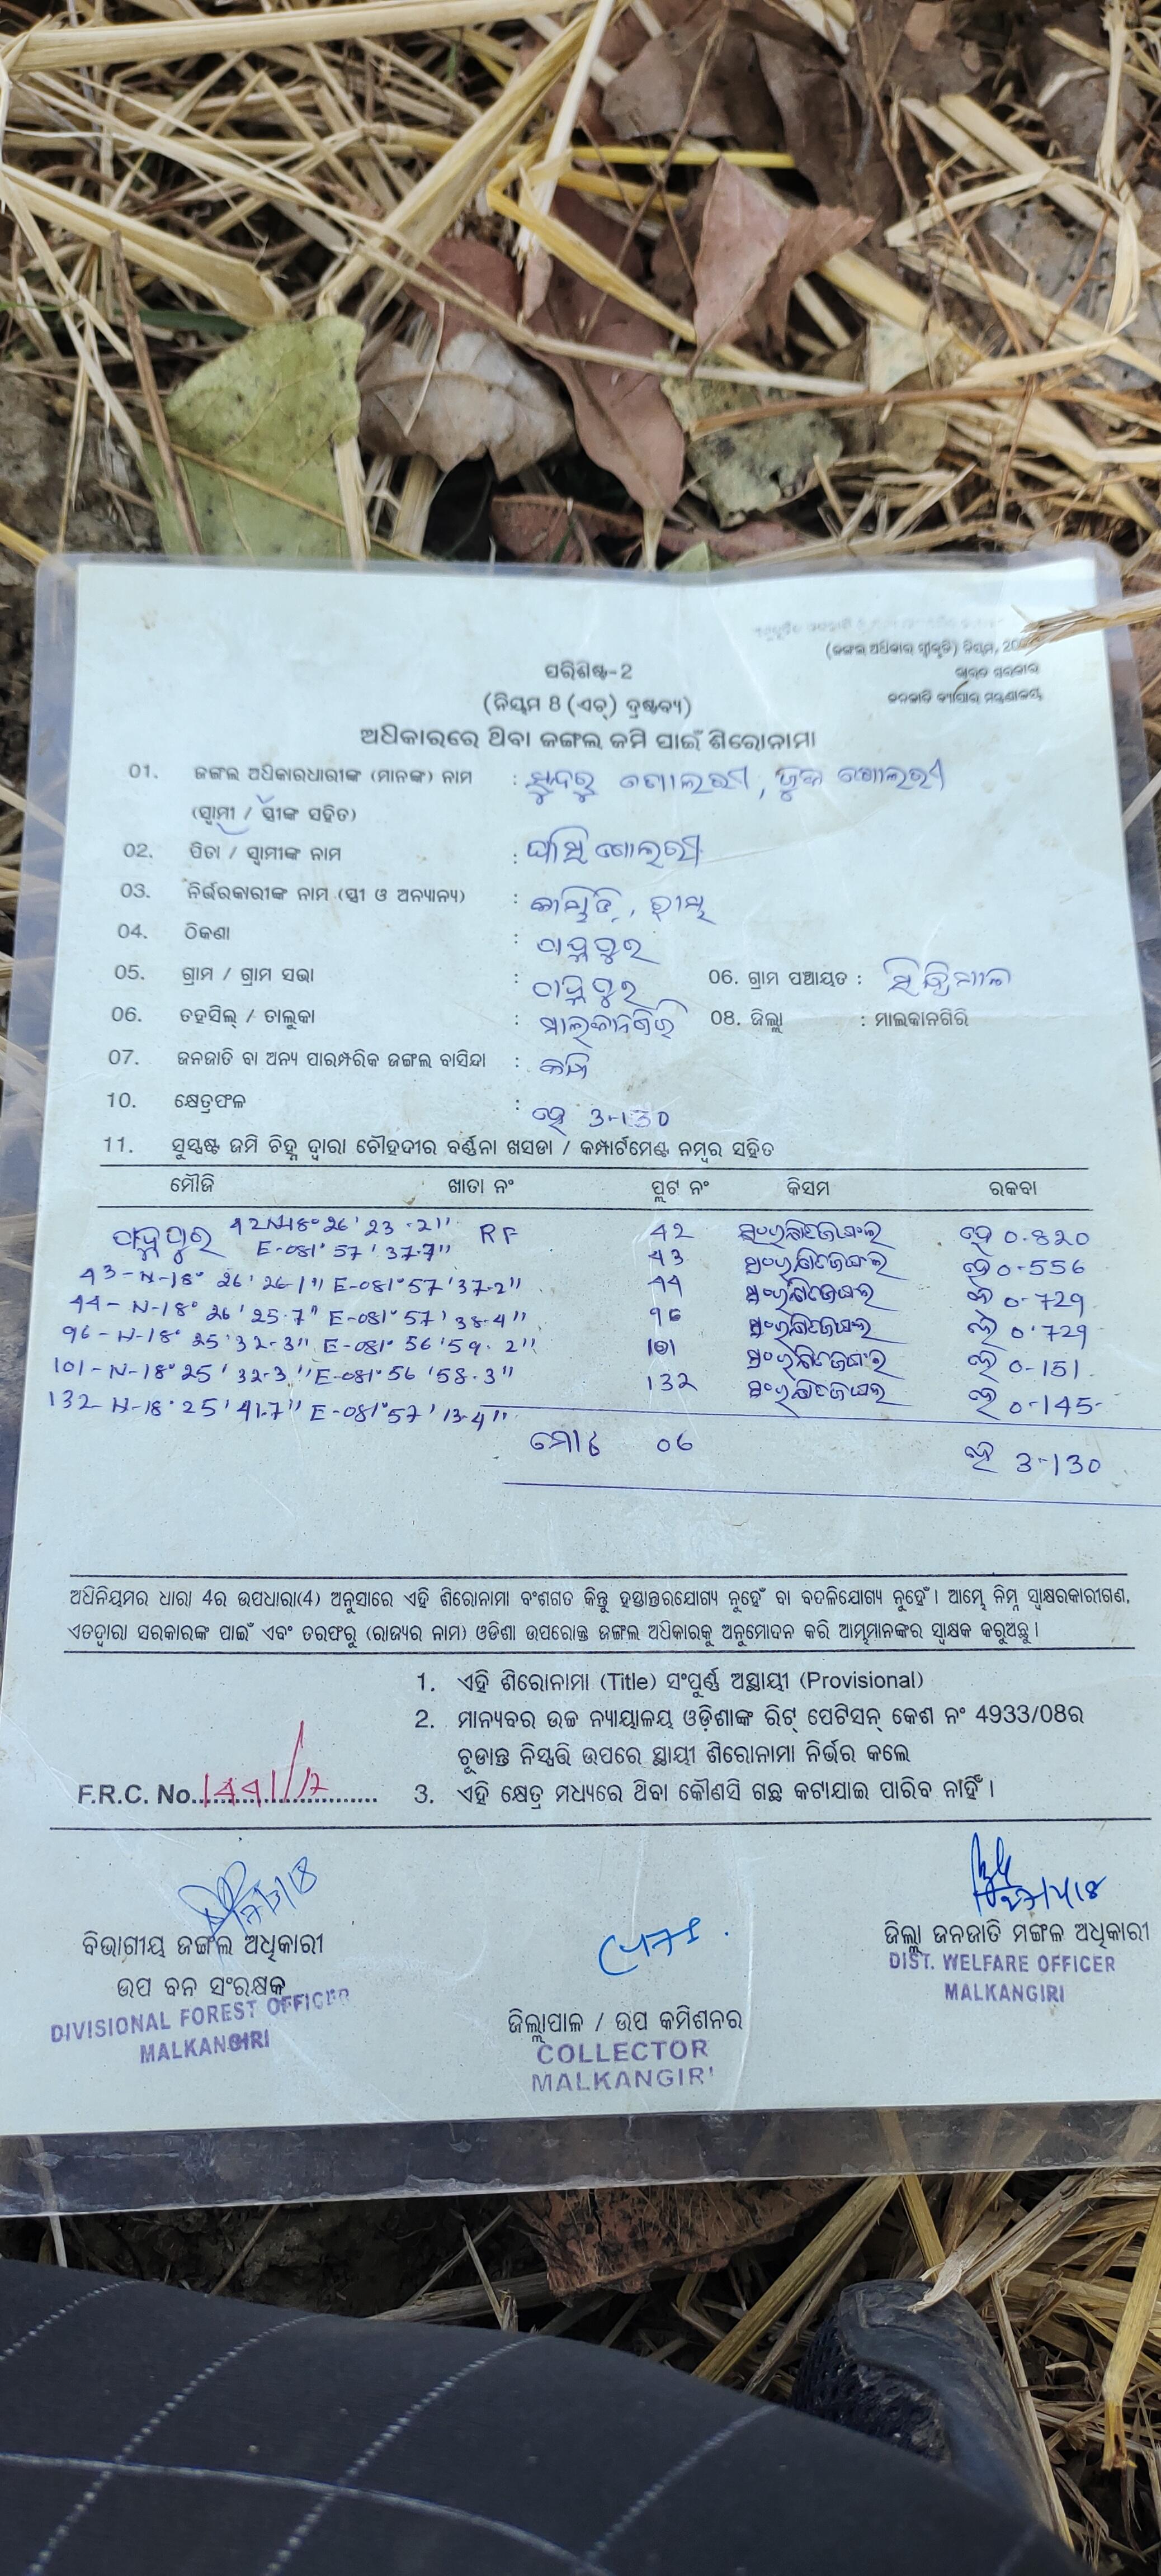 (ଜଙ୍ଗଲ ଅଧିକାର ସ୍ୱୀକୃତି) ନିୟମ,
ଭାରତ ସରକାର
ଜନଜାତି ବ୍ୟାପାର ମନ୍ତ୍ରଣାଳୟ
ପରିଶିଷ୍ଟ-2
(ନିୟମ 8 (ଏଚ୍) ଦ୍ରଷ୍ଟବ୍ୟ)
ଅଧିକାରରେ ଥିବା ଜଙ୍ଗଲ ଜମି ପାଇଁ ଶିରୋନାମା
01. ଜଙ୍ଗଲ ଅଧିକାରଧାରୀଙ୍କ (ମାନଙ୍କ) ନାମ :
(ସ୍ୱାମୀ / ସ୍ତ୍ରୀଙ୍କ ସହିତ)
02. ପିତା / ସ୍ୱାମୀଙ୍କ ନାମ :
03. ନିର୍ଭରକାରୀଙ୍କ ନାମ (ସ୍ତ୍ରୀ ଓ ଅନ୍ୟାନ୍ୟ) :
04. ଠିକଣା :
05. ଗ୍ରାମ / ଗ୍ରାମ ସଭା : 06. ଗ୍ରାମ ପଞ୍ଚାୟତ :
06. ତହସିଲ୍ / ତାଲୁକା : ମାଲକାନଗିରି 08. ଜିଲ୍ଲା : ମାଲକାନଗିରି
07. ଜନଜାତି ବା ଅନ୍ୟ ପାରମ୍ପରିକ ଜଙ୍ଗଲ ବାସିନ୍ଦା :
10. କ୍ଷେତ୍ରଫଳ : ହେ 3-130
11. ସୁସ୍ପଷ୍ଟ ଜମି ଚିହ୍ନ ଦ୍ୱାରା ଚୌହଦୀର ବର୍ଣ୍ଣନା ଖସଡା / କମ୍ପାର୍ଟମେଣ୍ଟ ନମ୍ବର ସହିତ
ମୌଜି ଖାତା ନଂ ପ୍ଲଟ ନଂ କିସମ ରକବା
42 N-18° 26' 23.2" RF 42 ହେ 0.820
E-081° 57' 37.7" 43 ହେ 0-556
43-N-18° 26' 26.1" E-081° 57' 37.2" 44 ହେ 0-729
44-N-18° 26' 25.7" E-081° 57' 38.4" 96 ହେ 0.729
96-N-18° 25' 32-3" E-081° 56' 59.2" 101 ହେ 0-151
101-N-18° 25' 32-3" E-081° 56' 58.3" 132 ହେ 0-145
132-N-18° 25' 41.7" E-081° 57' 13.4"
ମୋଟ 06 ହେ 3-130
ଅଧିନିୟମର ଧାରା 4ର ଉପଧାରା(4) ଅନୁସାରେ ଏହି ଶିରୋନାମା ବଂଶଗତ କିନ୍ତୁ ହସ୍ତାନ୍ତରଯୋଗ୍ୟ ନୁହେଁ ବା ବଦଳିଯୋଗ୍ୟ ନୁହେଁ। ଆମ୍ଭେ ନିମ୍ନ ସ୍ୱାକ୍ଷରକାରୀଗଣ,
ଏତଦ୍ୱାରା ସରକାରଙ୍କ ପାଇଁ ଏବଂ ତରଫରୁ (ରାଜ୍ୟର ନାମ) ଓଡିଶା ଉପରୋକ୍ତ ଜଙ୍ଗଲ ଅଧିକାରକୁ ଅନୁମୋଦନ କରି ଆମ୍ଭମାନଙ୍କର ସ୍ୱାକ୍ଷକ କରୁଅଛୁ।
1. ଏହି ଶିରୋନାମା (Title) ସଂପୂର୍ଣ୍ଣ ଅସ୍ଥାୟୀ (Provisional)
2. ମାନ୍ୟବର ଉଚ୍ଚ ନ୍ୟାୟାଳୟ ଓଡ଼ିଶାଙ୍କ ରିଟ୍ ପେଟିସନ୍ କେଶ ନଂ 4933/08ର
ଚୂଡାନ୍ତ ନିସ୍ପତ୍ତି ଉପରେ ସ୍ଥାୟୀ ଶିରୋନାମା ନିର୍ଭର କଲେ
F.R.C. No. 1441/12 3. ଏହି କ୍ଷେତ୍ର ମଧ୍ୟରେ ଥିବା କୌଣସି ଗଛ କଟାଯାଇ ପାରିବ ନାହିଁ।
ବିଭାଗୀୟ ଜଙ୍ଗଲ ଅଧିକାରୀ
ଉପ ବନ ସଂରକ୍ଷକ
DIVISIONAL FOREST OFFICER
MALKANGIRI
ଜିଲ୍ଲାପାଳ / ଉପ କମିଶନର
COLLECTOR
MALKANGIRI
27/4/18
ଜିଲ୍ଲା ଜନଜାତି ମଙ୍ଗଳ ଅଧିକାରୀ
DIST. WELFARE OFFICER
MALKANGIRI